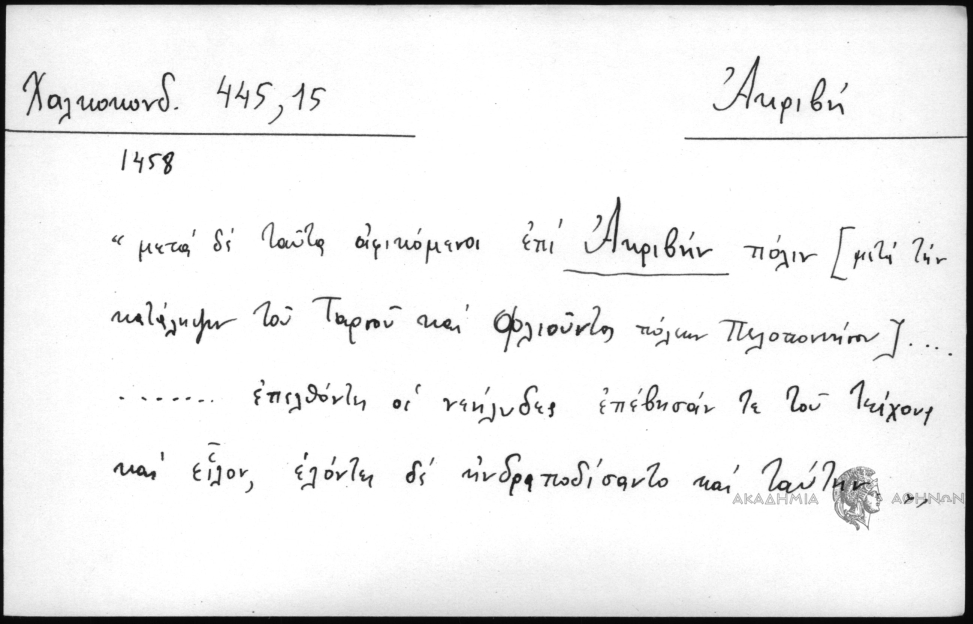 Χαλκοκονδ. 445,15
Ἀκριβή
1458
"μετά δέ ταῦτα ἀφικόμενοι ἐπί Ἀκριβήν πόλιν [μετά τήν
κατάληψιν τοῦ Ταρσοῦ καί Φλιοῦντος πόλεων Πελοποννήσου]....
....... ἐπελθόντες οἱ νεήλυδες ἐπέβησάν τε τοῦ τείχους
καί εἷλον, ἑλόντες δέ ἠνδραποδίσαντο καί ταύτην."
ΑΚΑΔΗΜΙΑ ΑΘΗΝΩΝ